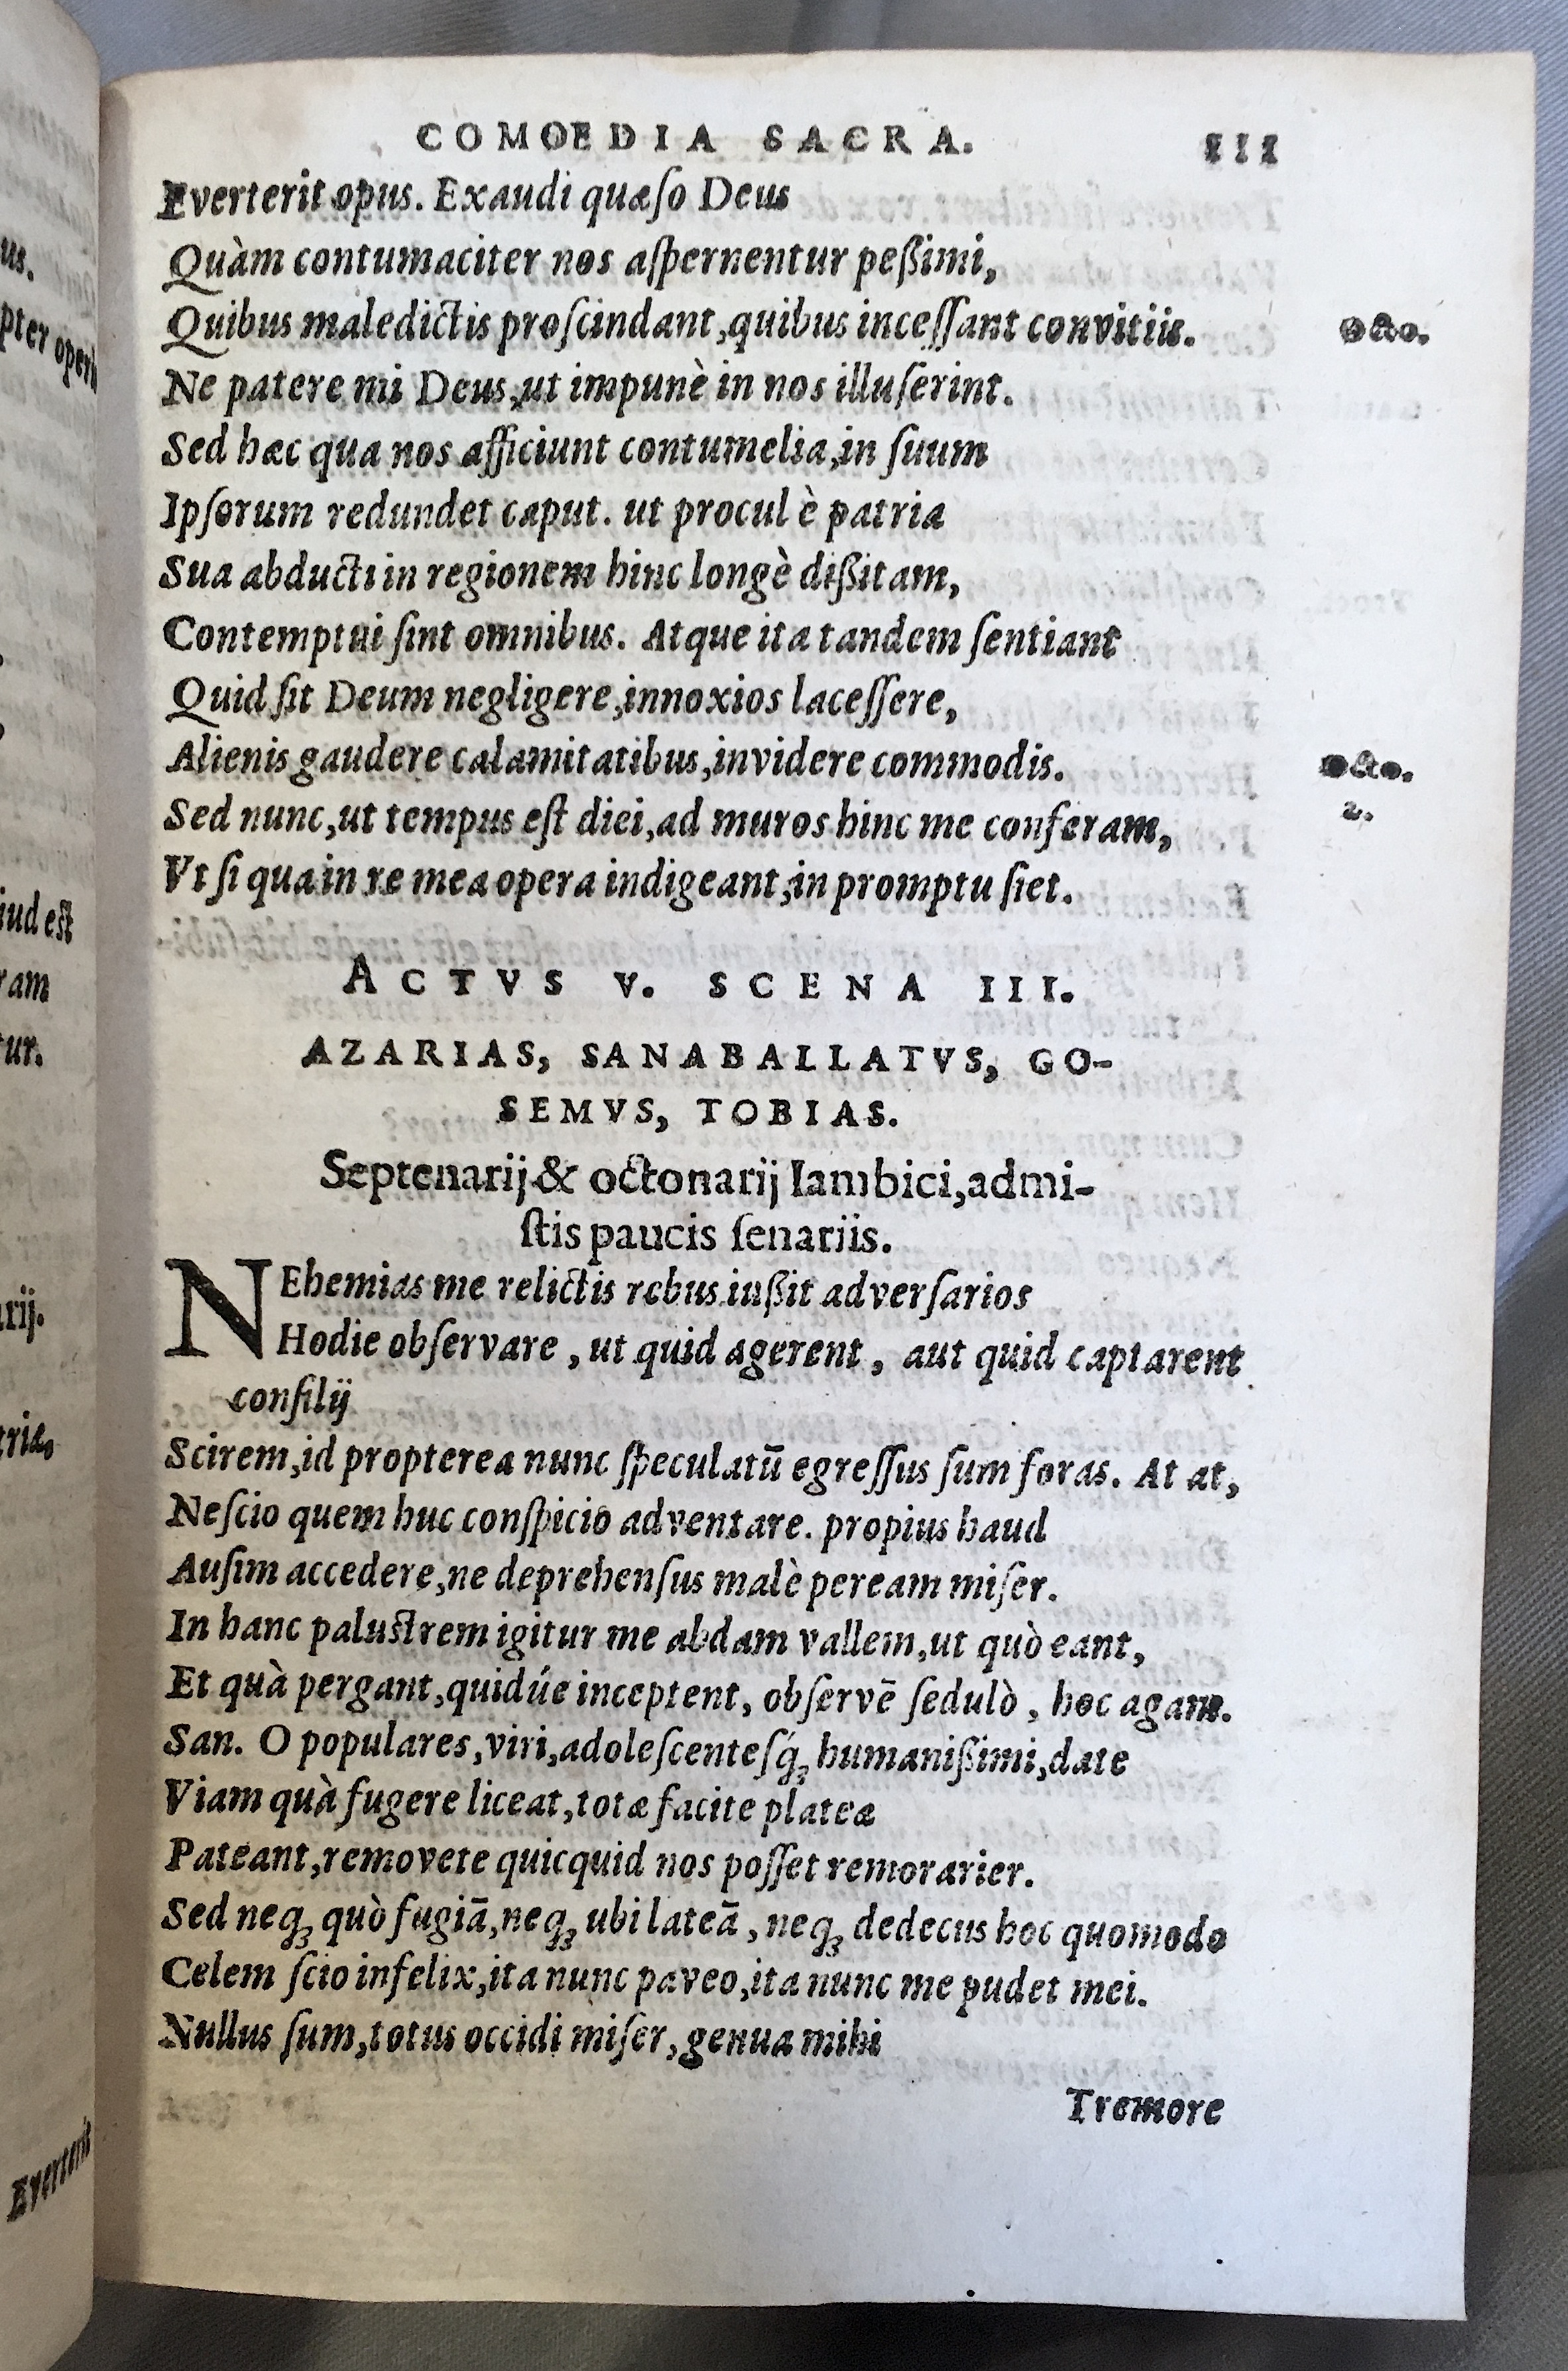 COMOEDIA SACRA. 111
Everterit opus. Exaudi quæſo Deus
Quàm contumaciter nos aſpernentur peßimi,
Quibus maledictis proſcindant, quibus inceſſant convitiis. octo.
Ne patere mi Deus, ut impunè in nos illuſerint.
Sed hæc qua nos afficiunt contumelia, in ſuum
Ipſorum redundet caput. ut procul è patria
Sua abducti in regionem hinc longè dißitam,
Contemptui ſint omnibus. Atque ita tandem ſentiant
Quid ſit Deum negligere, innoxios laceſſere,
Alienis gaudere calamitatibus, invidere commodis. octo.
Sed nunc, ut tempus eſt diei, ad muros hinc me conferam, 2.
Vt ſi qua in re mea opera indigeant, in promptu ſiet.
ACTVS V. SCENA III.
AZARIAS, SANABALLATVS, GO-
SEMVS, TOBIAS.
Septenarij & octonarij Iambici, admi-
ſtis paucis ſenariis.
NEhemias me relictis rebus iußit adverſarios
Hodie obſervare, ut quid agerent, aut quid captarent
conſilij
Scirem, id propterea nunc ſpeculatū egreſſus ſum foras. At at,
Neſcio quem huc conſpicio adventare. propius haud
Auſim accedere, ne deprehenſus malè peream miſer.
In hanc paluſtrem igitur me abdam vallem, ut quò eant,
Et quà pergant, quidúe inceptent, obſervē ſedulò, hoc agam.
San. O populares, viri, adoleſcenteſq́ꝫ humanißimi, date
Viam quà fugere liceat, totæ facite plateæ
Pateant, removete quicquid nos poſſet remorarier.
Sed neqꝫ quò fugiā, neqꝫ ubi lateā, neqꝫ dedecus hoc quomodo
Celem ſcio infelix, ita nunc paveo, ita nunc me pudet mei.
Nullus ſum, totus occidi miſer, genua mihi
Tremore
us.
pter operi
iud eſt
ram
tur.
arij.
triæ,
Everterit